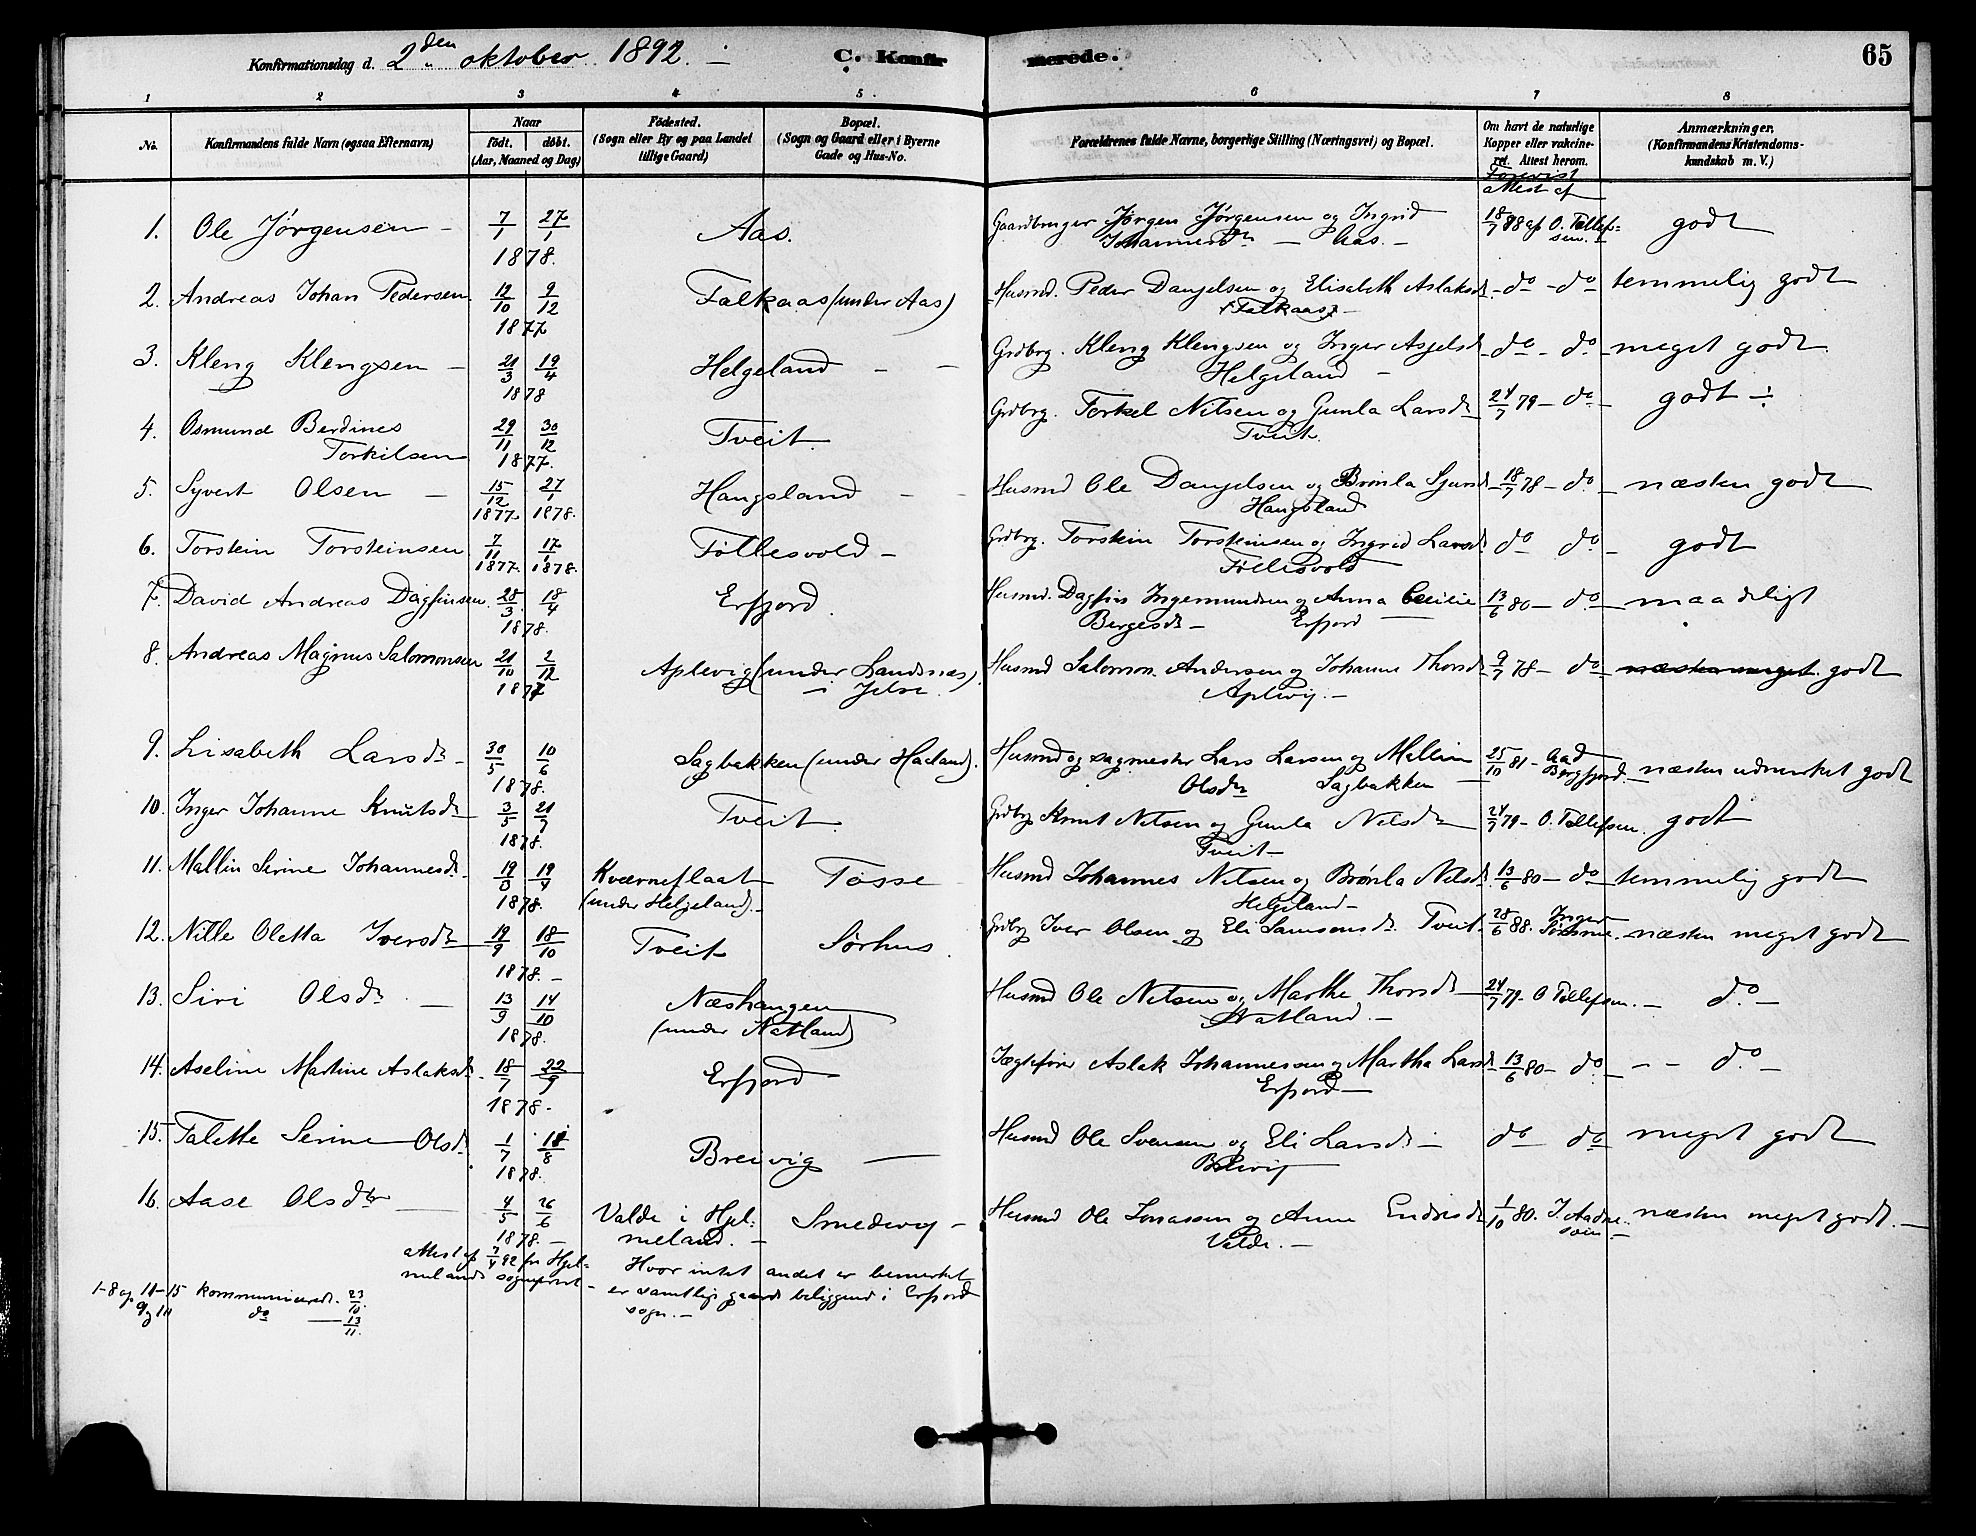 Konfirmationsdag d. 2den oktober 1892. C. Konfirmerede. 65
1 2 3 4 5 6 7 8
No. Konfirmandens fulde Navn (ogsaa Efternavn) Naar født. døbt. (Aar, Maaned og Dag) Fødested. (Sogn eller By og paa Landet tillige Gaard) Bopæl. (Sogn og Gaard eller i Byerne Gade og Hus-No. Forældrenes fulde Navne, borgerlige Stilling (Næringsvei) og Bopæl. Om havt de naturlige Kopper eller vakcineret. Attest herom. Anmærkninger. (Konfirmandens Kristendomskundskab m. V.)
Forevist attest af
1. Ole Jørgensen – 7/1 27/1 1878. Aas. Gaardbruger Jørgen Jørgensen og Ingrid Johannesdtr – Aas. – 18/7 88 af O. Tollefsen. – godt
2. Andreas Johan Pedersen 12/10 9/12 1877 Falkaas (under Aas) Husmd. Peder Danjelsen og Elisabeth Aslaksd. (Falkaas) – do – do temmelig godt
3. Kleng Klengsen – 21/3 19/4 1878 Helgeland – – Grdbrg. Kleng Klengsen og Inger Asjelsd Helgeland – do – do meget godt.
4. Osmund Berdines Torkilsen 29/11 30/12 1877. Tveit. Grdbrg. Torkel Nilsen og Gunla Larsd Tveit. 24/7 79 – do – godt
5. Syvert Olsen – 15/12 1877 27/1 1878. Hangsland – – Husmd Ole Danjelsen og Brønla Sjursd Hangsland – 18/7 78 – do – næsten godt
6. Torstein Torsteinsen 7/11 1877. 17/1 1878. Føllesvold – Grdbrg. Torstein Torsteinsen og Ingrid Larsd. Føllesvold do do – godt
7. David Andreas Dagfinsen. 28/3 18/4 1878. Erfjord. Husmd. Dagfin Ingemundsen og Anna Cecilie Bergesd – Erfjord 13/6 80 – do – maadeligt
8. Andreas Magnus Salomonsen 21/10 2/12 1877 Aplevig (under Landsnæs) – i Jelse. Husmd Salomon Andersen og Johanne Thorsd Aplevig. – 9/7 78 – do næsten meget godt
9. Lisabeth Larsd – 30/5 10/6 1878. Sagbakken (under Haeland). Husmd og sagmester Lars Larsen og Mallin Olsdtr Sagbakken – 25/10 81 – Aad Bergfjord. – næsten udmerket godt
10. Inger Johanne Knutsd 3/5 21/7 1878. Tveit. Grdbrg Knut Nilsen og Gunla Nilsd Tveit – 24/7 79 – O. Tollefsen. godt
11. Mallin Serine Johannesd. 19/4 1878. Kværneflaat (under Helgeland). – Tøsse Husmd Johannes Nilsen og Brønla Nilsd. Helgeland – 13/6 80 – do temmelig godt
12. Nille Oletta Iversd 19/9 18/10 1878. – Tveit Sørhus. Grdbrg Iver Olsen og Eli Samsonsd. Tveit. 28/6 88. Inger – næsten meget godt
13. Siri Olsd. – 13/9 14/10 1878. Næshangen (under Natland) Husmd Ole Nilsen og Marthe Thorsd Natland. – 24/7 79 – O Tollefsen. – do –
14. Aseline Martine Aslaksd. 18/7 22/9 1878. Erfjord Jægtefører Aslak Johannessen og Martha Larsd Erfjord – 13/6 80 – do – – – do –
15. Talette Serine Olsd. 1/7 18/8 1878. Breivig – Husmd Ole Svensen og Eli Larsd – Breivig do do meget godt
16. Aase Olsdtr – 4/5 26/6 1878. – Valde i Hjelmeland. – Smedevig – Husmd Ole Jonassen og Anne Endresd Valde. – 1/10 80. J. næsten meget godt. –
attest af 7/4 92 fra Hjelmelands sogneprest –
Hvor intet andet er bemerket er samtlige gaarde beliggende i Erfjord sogn. –
1–8 og 11–15 kommunicerede. 23/10.
9 og 10 do – 13/11.